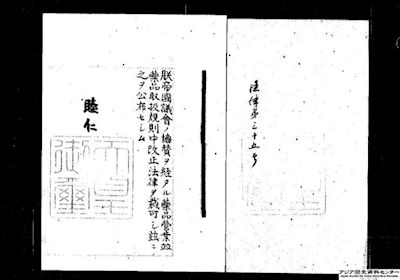 法律第三十五号
朕帝國議會ノ協賛ヲ経タル藥品營業並
藥品取扱規則中改正法律ヲ裁可シ茲ニ
之ヲ公布セシム
睦仁
天皇
御璽
アジア歴史資料センター